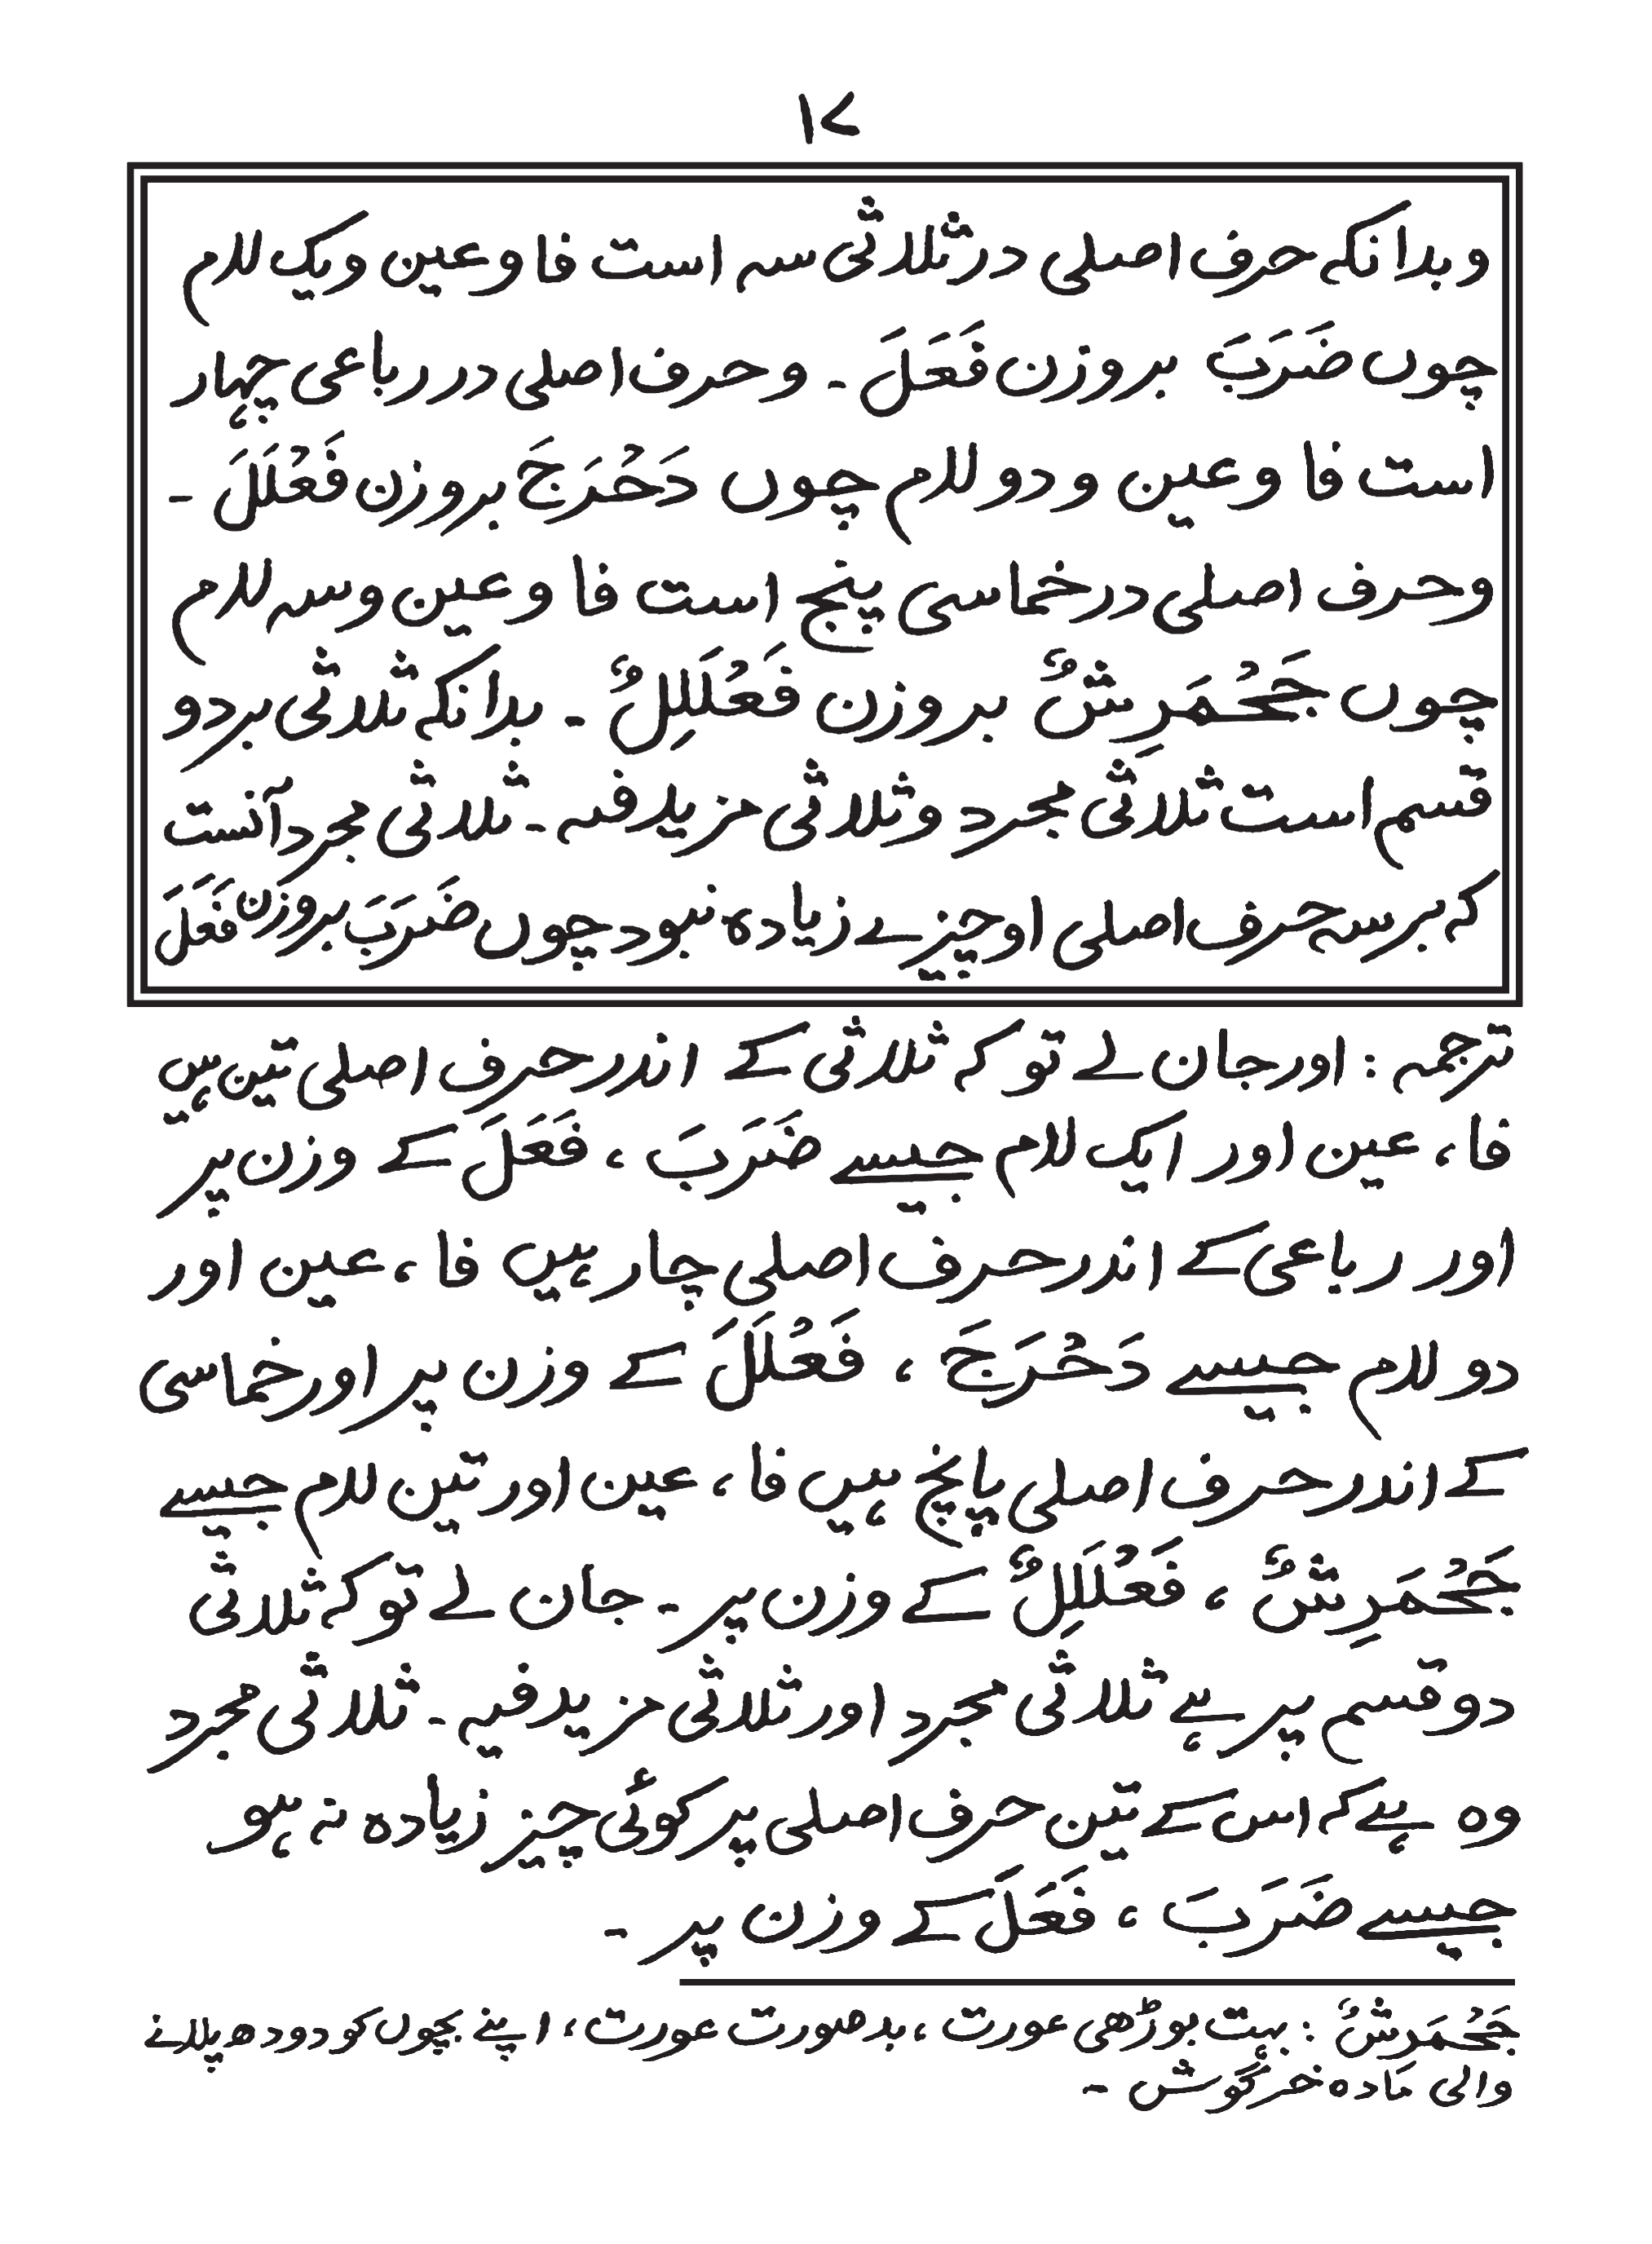 ۱۷
و بدانکہ حرف اصلی در ثلاثی سہ است فا و عین و یک لام
چوں ضَرَبَ بروزن فَعَلَ ۔ و حرف اصلی در رباعی چہار
است فا و عین و دو لام چوں دَحْرَجَ بروزن فَعْلَلَ ۔
و حرف اصلی در خماسی پنج است فا و عین و سہ لام
چوں جَحْمَرِشٌ بروزن فَعْلَلِلٌ ۔ بدانکہ ثلاثی بر دو
قسم است ثلاثی مجرد و ثلاثی مزید فیہ ۔ ثلاثی مجرد آنست
کہ بر سہ حرف اصلی او چیزے زیادہ نبود چوں ضَرَبَ بروزن فَعَلَ
ترجمہ : اور جان لے تو کہ ثلاثی کے اندر حرف اصلی تین ہیں
فا، عین اور ایک لام جیسے ضَرَبَ ، فَعَلَ کے وزن پر
اور رباعی کے اندر حرف اصلی چار ہیں فا ، عین اور
دو لام جیسے دَحْرَجَ ، فَعْلَلَ کے وزن پر اور خماسی
کے اندر حرف اصلی پانچ ہیں فا ، عین اور تین لام جیسے
جَحْمَرِشٌ ، فَعْلَلِلٌ کے وزن پر ۔ جان لے تو کہ ثلاثی
دو قسم پر ہے ثلاثی مجرد اور ثلاثی مزید فیہ ۔ ثلاثی مجرد
وہ ہے کہ اس کے تین حرف اصلی پر کوئی چیز زیادہ نہ ہو
جیسے ضَرَبَ ، فَعَلَ کے وزن پر ۔
جَحْمَرِشٌ : بہت بوڑھی عورت ، بدصورت عورت ، اپنے بچوں کو دودھ پلانے
والی مادہ خرگوش ۔